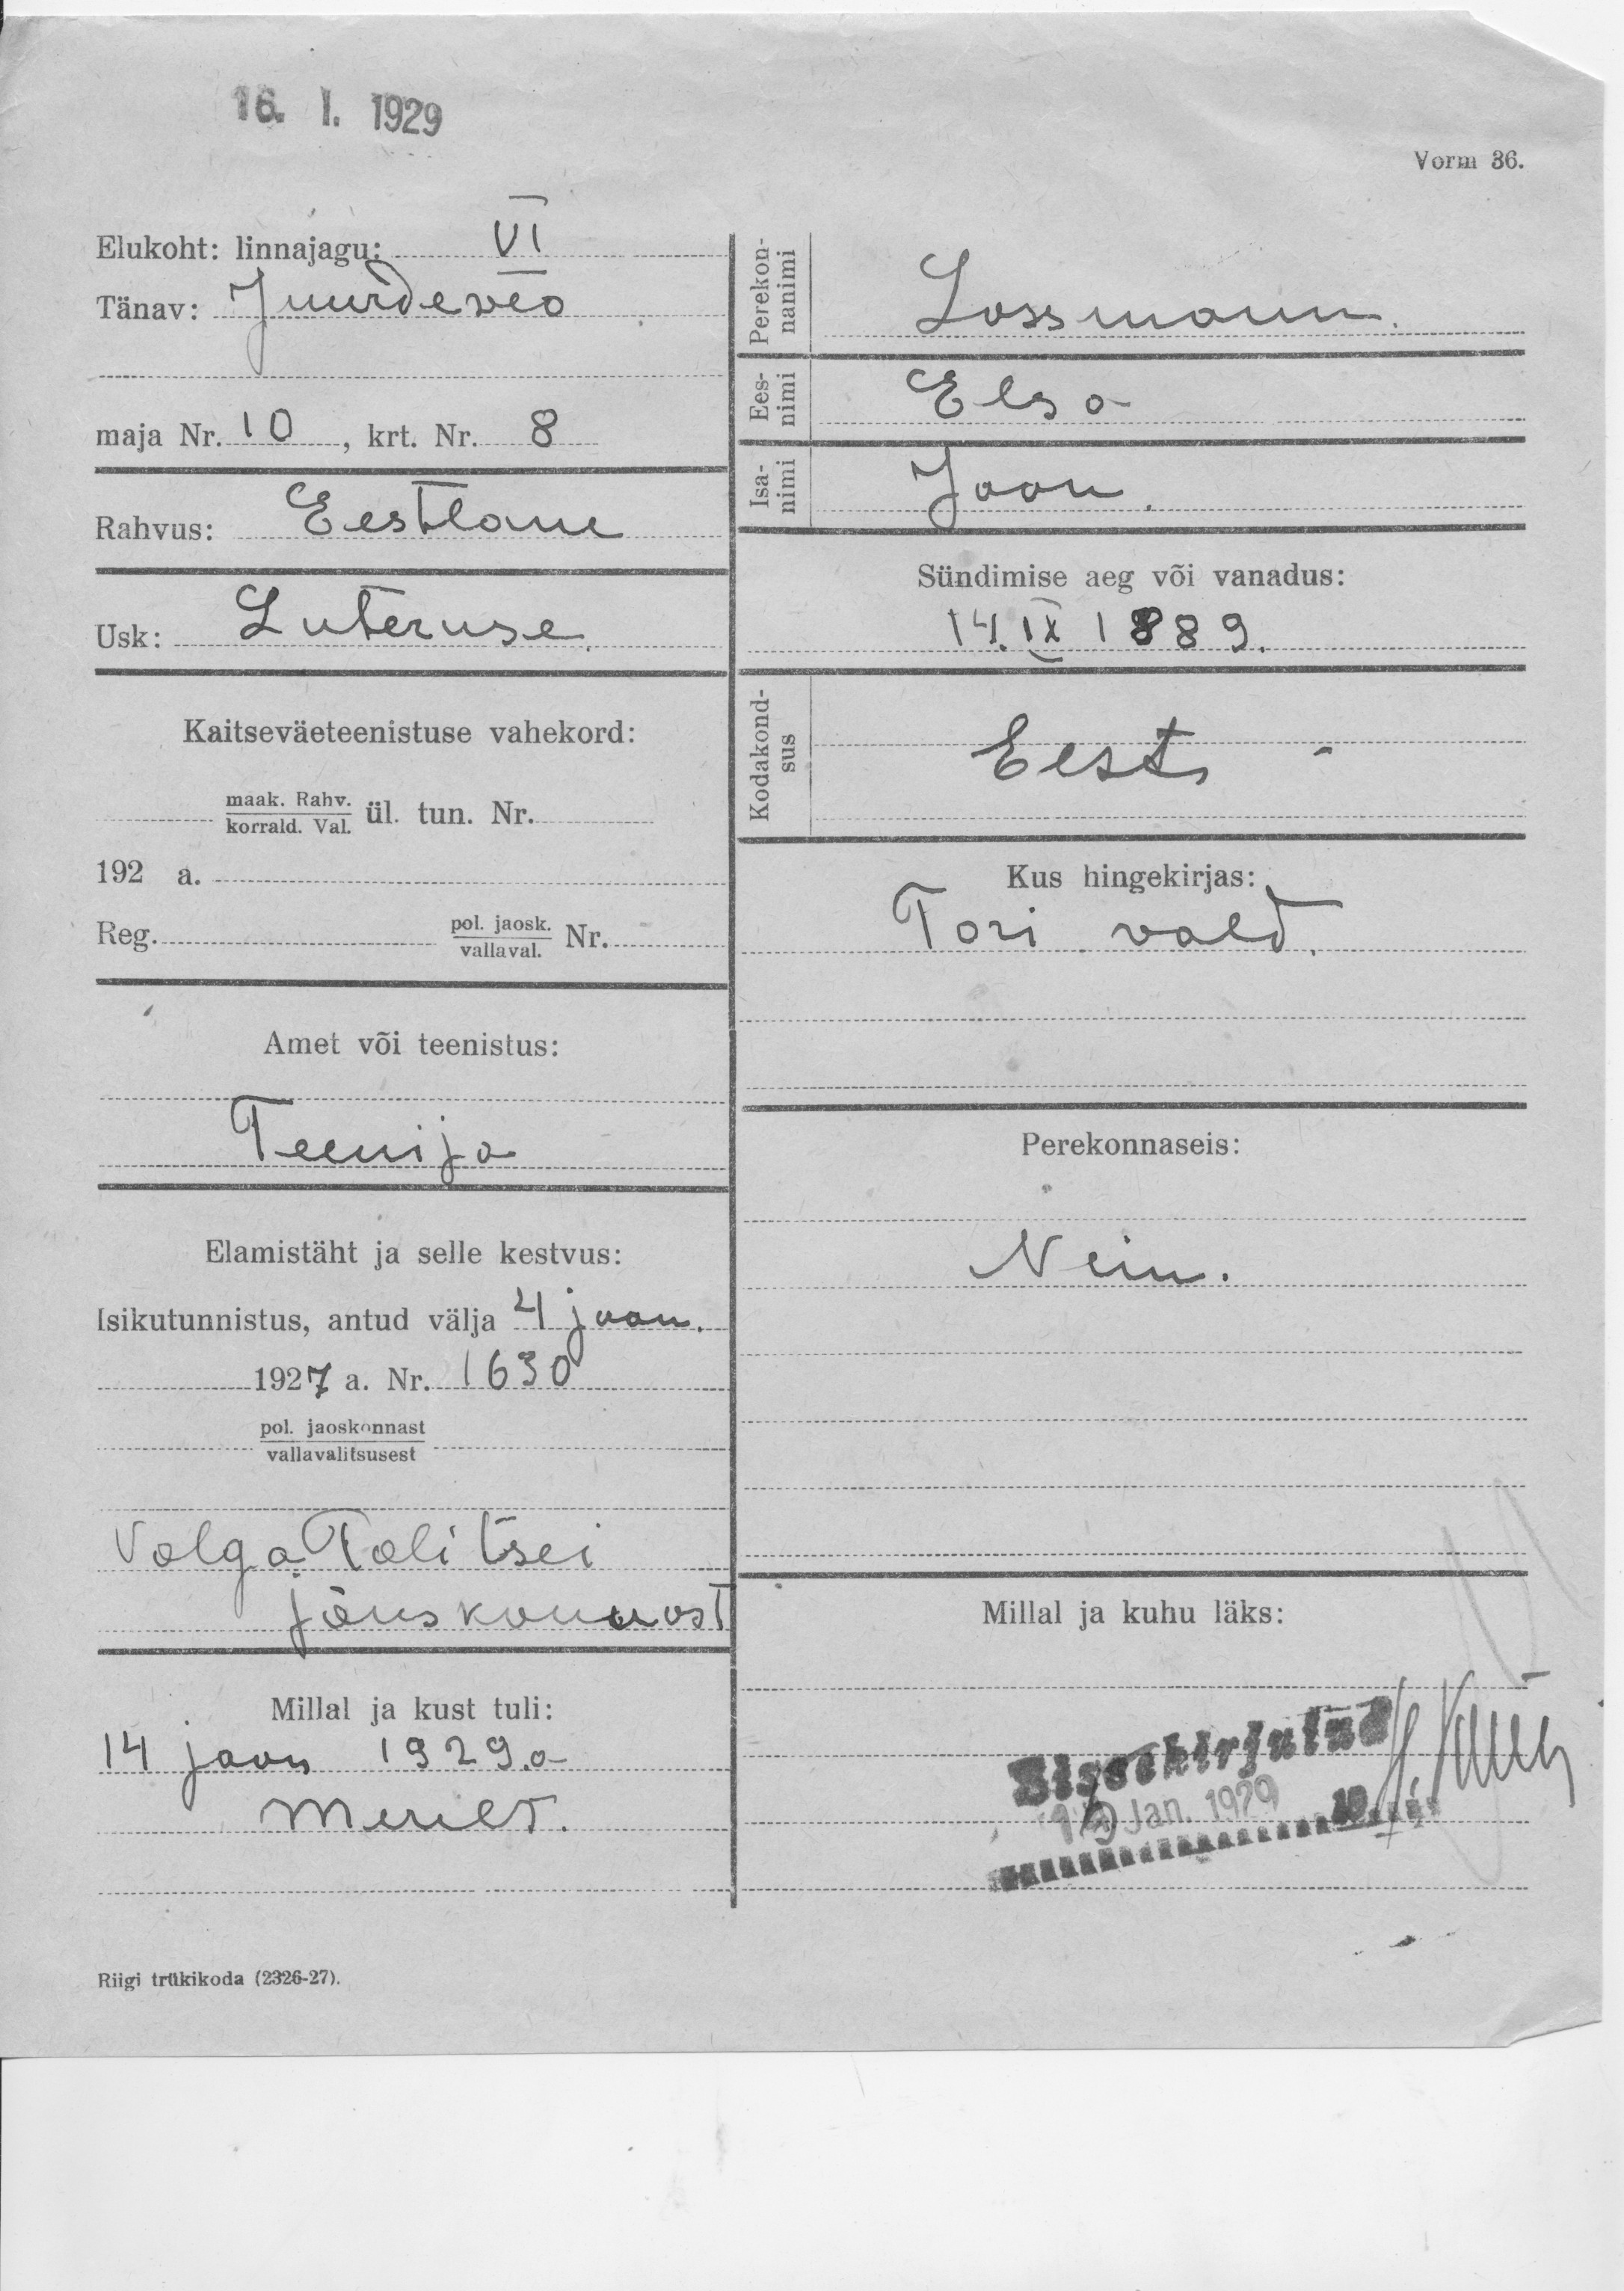 16. I. 1929
Vorm 36.
Elukoht: linnajagu: VI
Tänav: Juurdeveo
maja Nr. 10, krt. Nr. 8
Rahvus: Eestlane
Usk: Luteruse.
Kaitseväeteenistuse vahekord:
maak. Rahv.
korrald. Val. ül. tun. Nr.
192 a.
Reg. pol. jaosk.
vallaval. Nr.
Amet või teenistus:
Teenija
Elamistäht ja selle kestvus:
Isikutunnistus, antud välja 4 jaan.
1927 a. Nr. 1630
pol. jaoskonnast
vallavalitsusest
Valga Politsei
jaoskonnast
Millal ja kust tuli:
14 jaan 1929.a
Perekon-
nanimi
Lossmann.
Ees-
nimi
Elsa
Isa-
nimi
Jaan.
Sündimise aeg või vanadus:
14. IX 1889.
Kodakond-
sus
Eesti
Kus hingekirjas:
Tori vald.
Perekonnaseis:
Neiu.
Millal ja kuhu läks:
Sissekirjutud
Jan. 1929
19
Riigi trükikoda (2326-27).